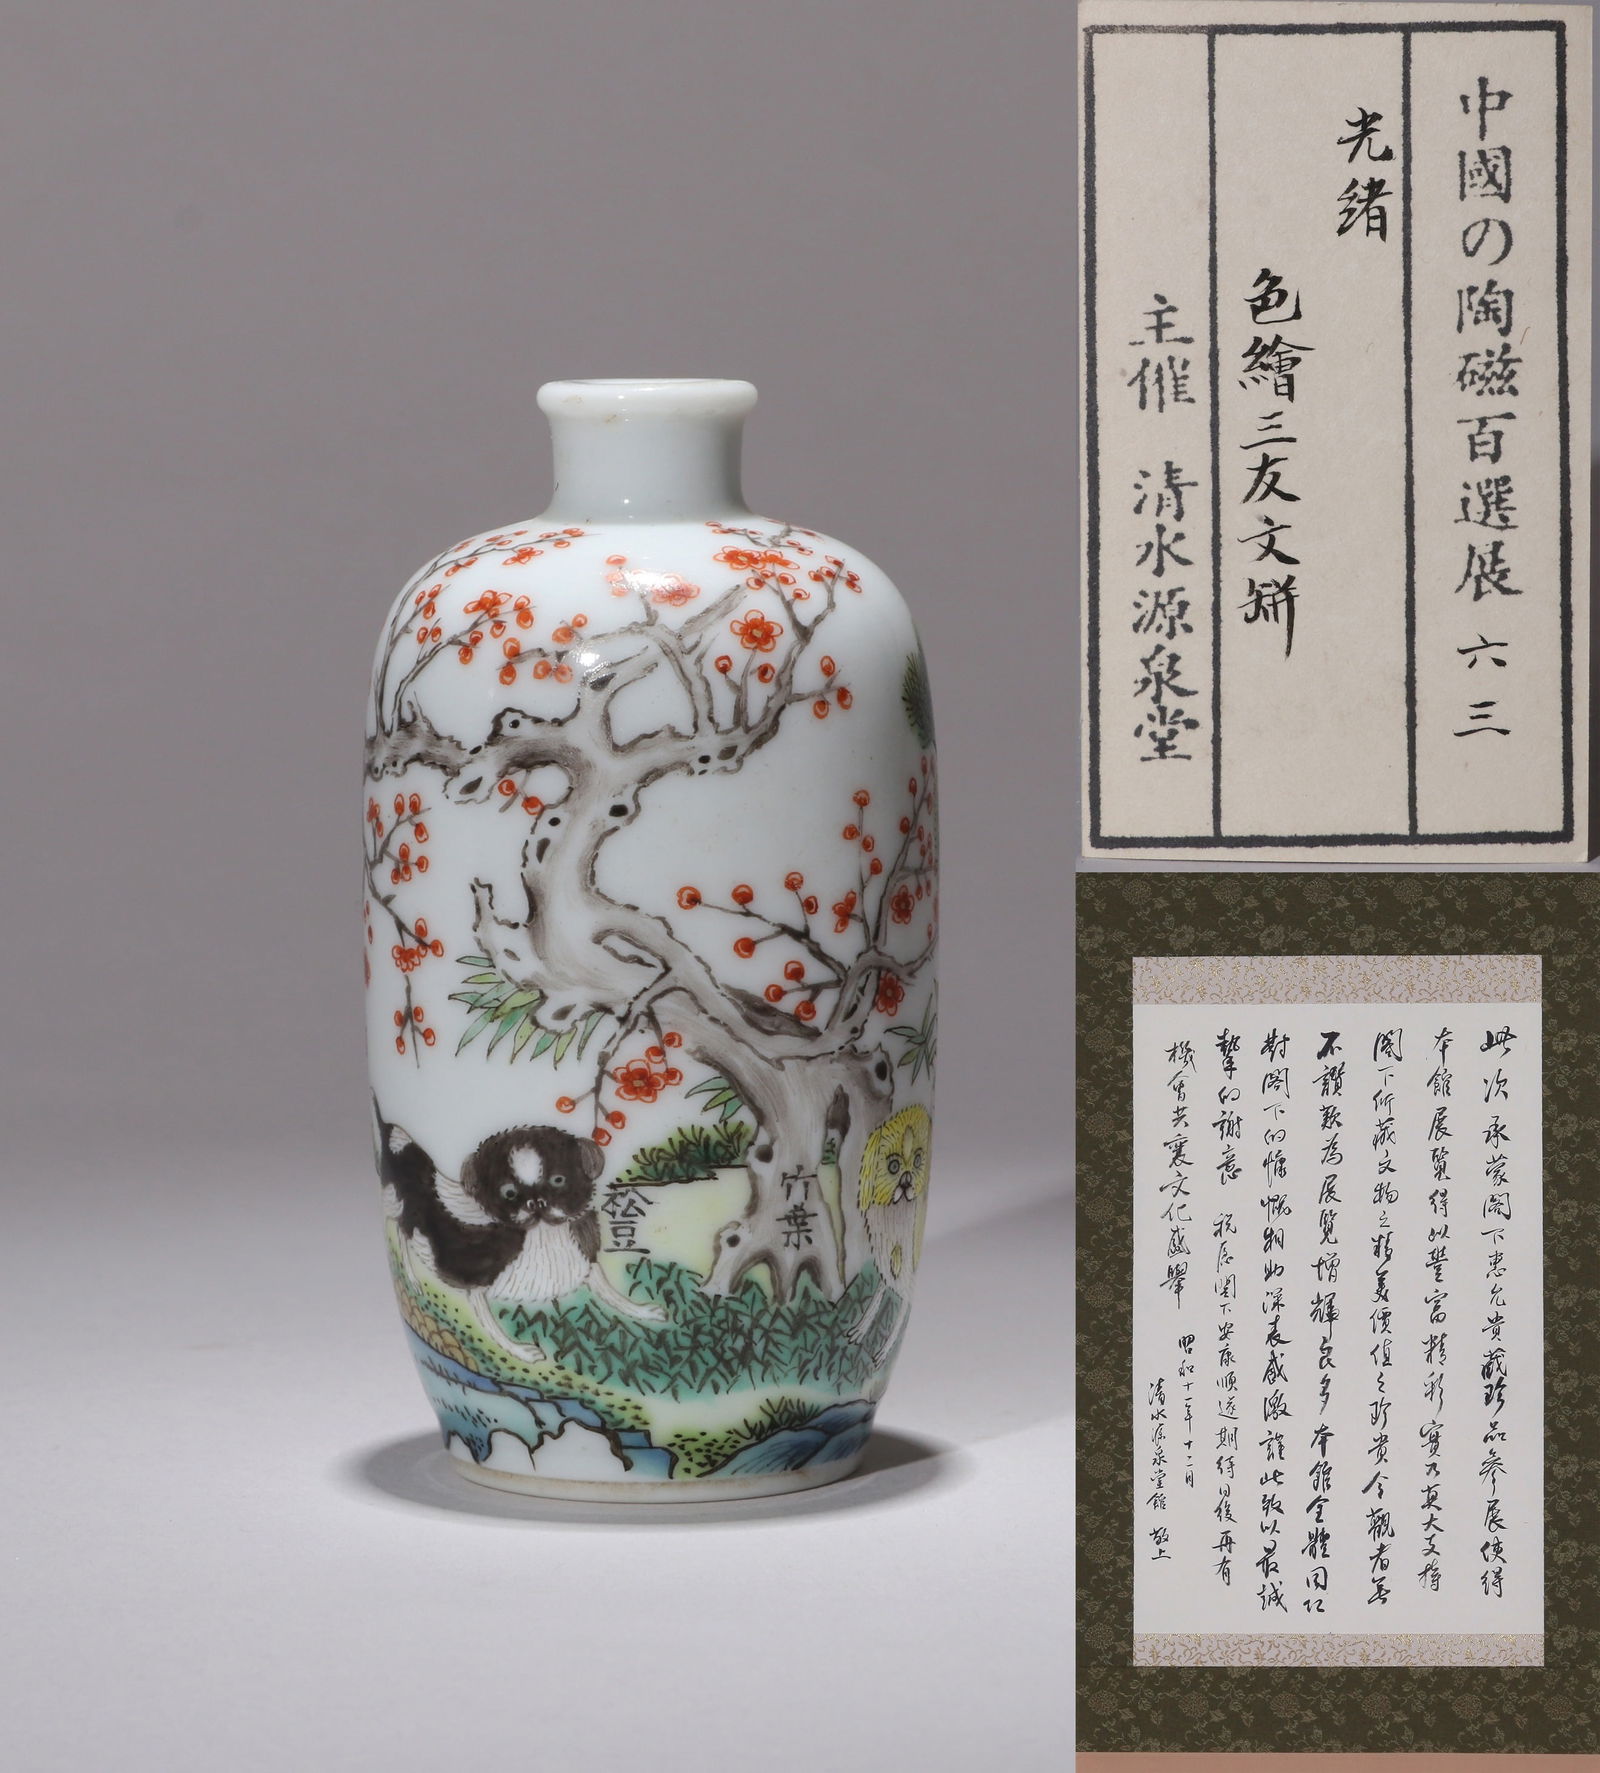 中國の陶磁百選展 六三
光緒
色繪三友文缾
主催 清水源泉堂
松豆
竹葉
此次承蒙閣下惠允貴藏珍品參展使得
本館展覽得以豐富精彩實乃莫大支持
閣下所藏文物之精美價值之珍貴令觀者無
不讚歎為展覽增輝良多本館全體同仁
對閣下的慷慨相助深表感激謹此致以最誠
摯的謝意 祝愿閣下安康順遂期待日後再有
機會共襄文化盛舉
昭和十一年十二月
清水源泉堂館 敬上